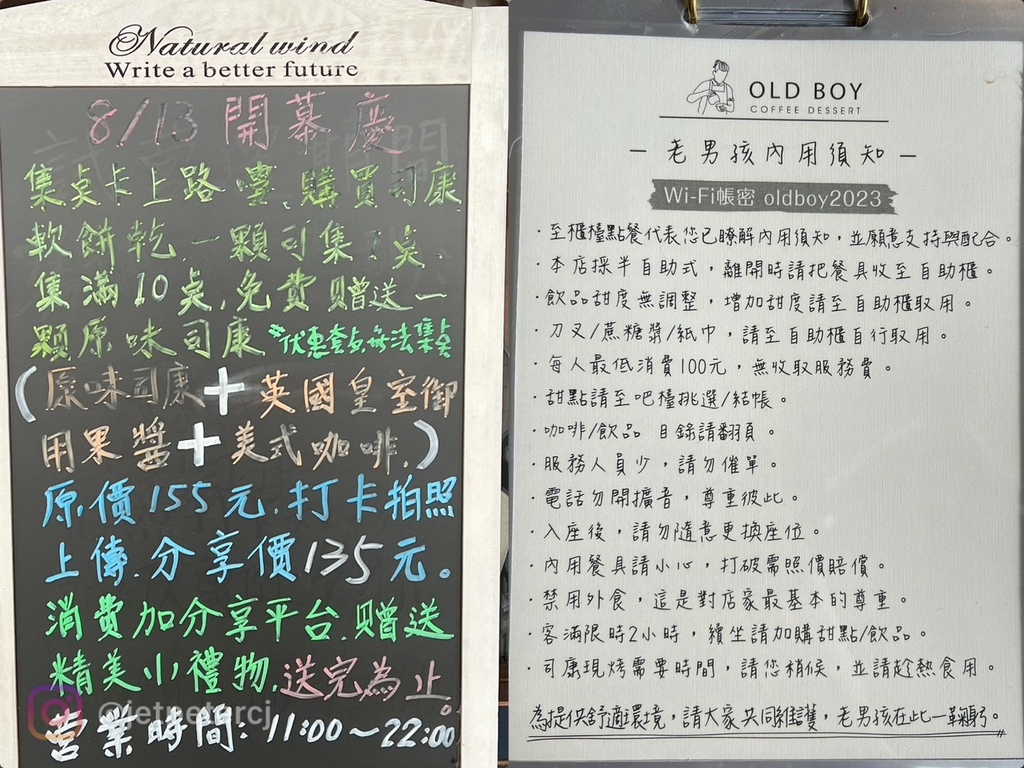 Natural wind
Write a better future
8/13 開幕慶
集点卡上路嘍,購買司康
軟餅乾,一顆可集1点,
集滿10点,免費贈送一
顆原味司康 *优惠套餐無法集点
(原味司康+英國皇室御
用果醬+美式咖啡.)
原價155元,打卡拍照
上傳.分享價135元。
消費加分享平台,贈送
精美小禮物,送完為止。
營業時間:11:00~22:00
OLD BOY
COFFEE DESSERT
— 老男孩內用須知 —
Wi-Fi帳密 oldboy2023
·至櫃檯點餐代表您已瞭解內用須知,並願意支持與配合。
·本店採半自助式,離開時請把餐具收至自助櫃。
·飲品甜度無調整,增加甜度請至自助櫃取用。
·刀叉/蔗糖漿/紙巾,請至自助櫃自行取用。
·每人最低消費100元,無收取服務費。
·甜點請至吧檯挑選/結帳。
·咖啡/飲品 目錄請翻頁。
·服務人員少,請勿催單。
·電話勿開擴音,尊重彼此。
·入座後,請勿隨意更換座位。
·內用餐具請小心,打破需照價賠償。
·禁用外食,這是對店家最基本的尊重。
·客滿限時2小時,續坐請加購甜點/飲品。
·司康現烤需要時間,請您稍候,並請趁熱食用。
為提供舒適環境,請大家共同維護,老男孩在此一鞠躬。